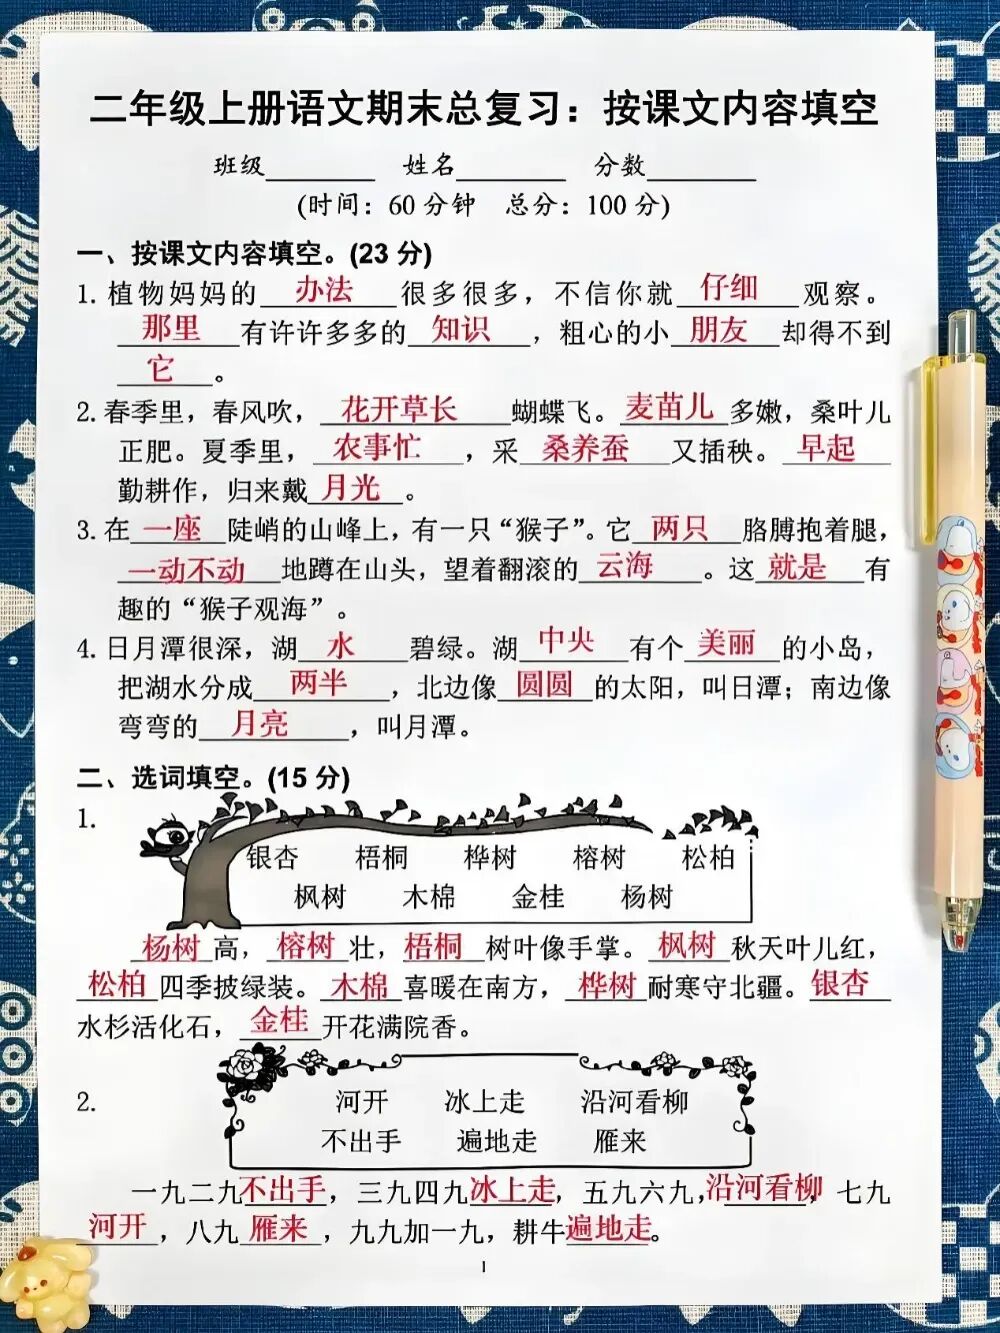 二年级上册语文期末总复习：按课文内容填空
班级________ 姓名________ 分数________
(时间：60分钟 总分：100分)
一、按课文内容填空。(23分)
1. 植物妈妈的 办法 很多很多，不信你就 仔细 观察。
那里 有许许多多的 知识 ，粗心的小 朋友 却得不到
它 。
2. 春季里，春风吹， 花开草长 蝴蝶飞。 麦苗儿 多嫩，桑叶儿
正肥。夏季里， 农事忙 ，采 桑养蚕 又插秧。 早起
勤耕作，归来戴 月光 。
3. 在 一座 陡峭的山峰上，有一只“猴子”。它 两只 胳膊抱着腿，
一动不动 地蹲在山头，望着翻滚的 云海 。这 就是 有
趣的“猴子观海”。
4. 日月潭很深，湖 水 碧绿。湖 中央 有个 美丽 的小岛，
把湖水分成 两半 ，北边像 圆圆 的太阳，叫日潭；南边像
弯弯的 月亮 ，叫月潭。
二、选词填空。(15分)
1.
银杏 梧桐 桦树 榕树 松柏
枫树 木棉 金桂 杨树
杨树 高， 榕树 壮， 梧桐 树叶像手掌。 枫树 秋天叶儿红，
松柏 四季披绿装。 木棉 喜暖在南方， 桦树 耐寒守北疆。 银杏
水杉活化石， 金桂 开花满院香。
2.
河开 冰上走 沿河看柳
不出手 遍地走 雁来
一九二九 不出手 ，三九四九 冰上走 ，五九六九， 沿河看柳 ，七九
河开 ，八九 雁来 ，九九加一九，耕牛 遍地走 。
1